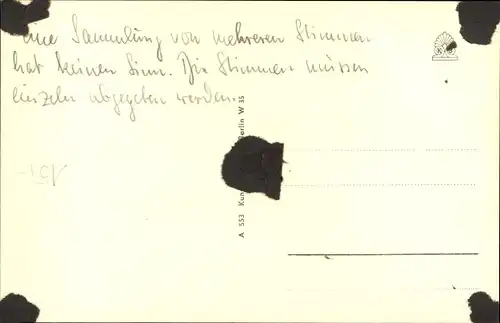 eine Sammlung von mehreren Stimmen
hat keinen Sinn. Die Stimmen müssen
einzeln abgegeben werden.
15,-
A 553 Kun erlin W 35